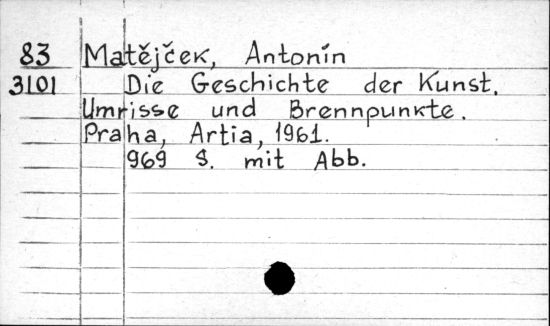 83 Matějček, Antonín
3101 Die Geschichte der Kunst.
Umrisse und Brennpunkte.
Praha, Artia, 1961.
969 S. mit Abb.